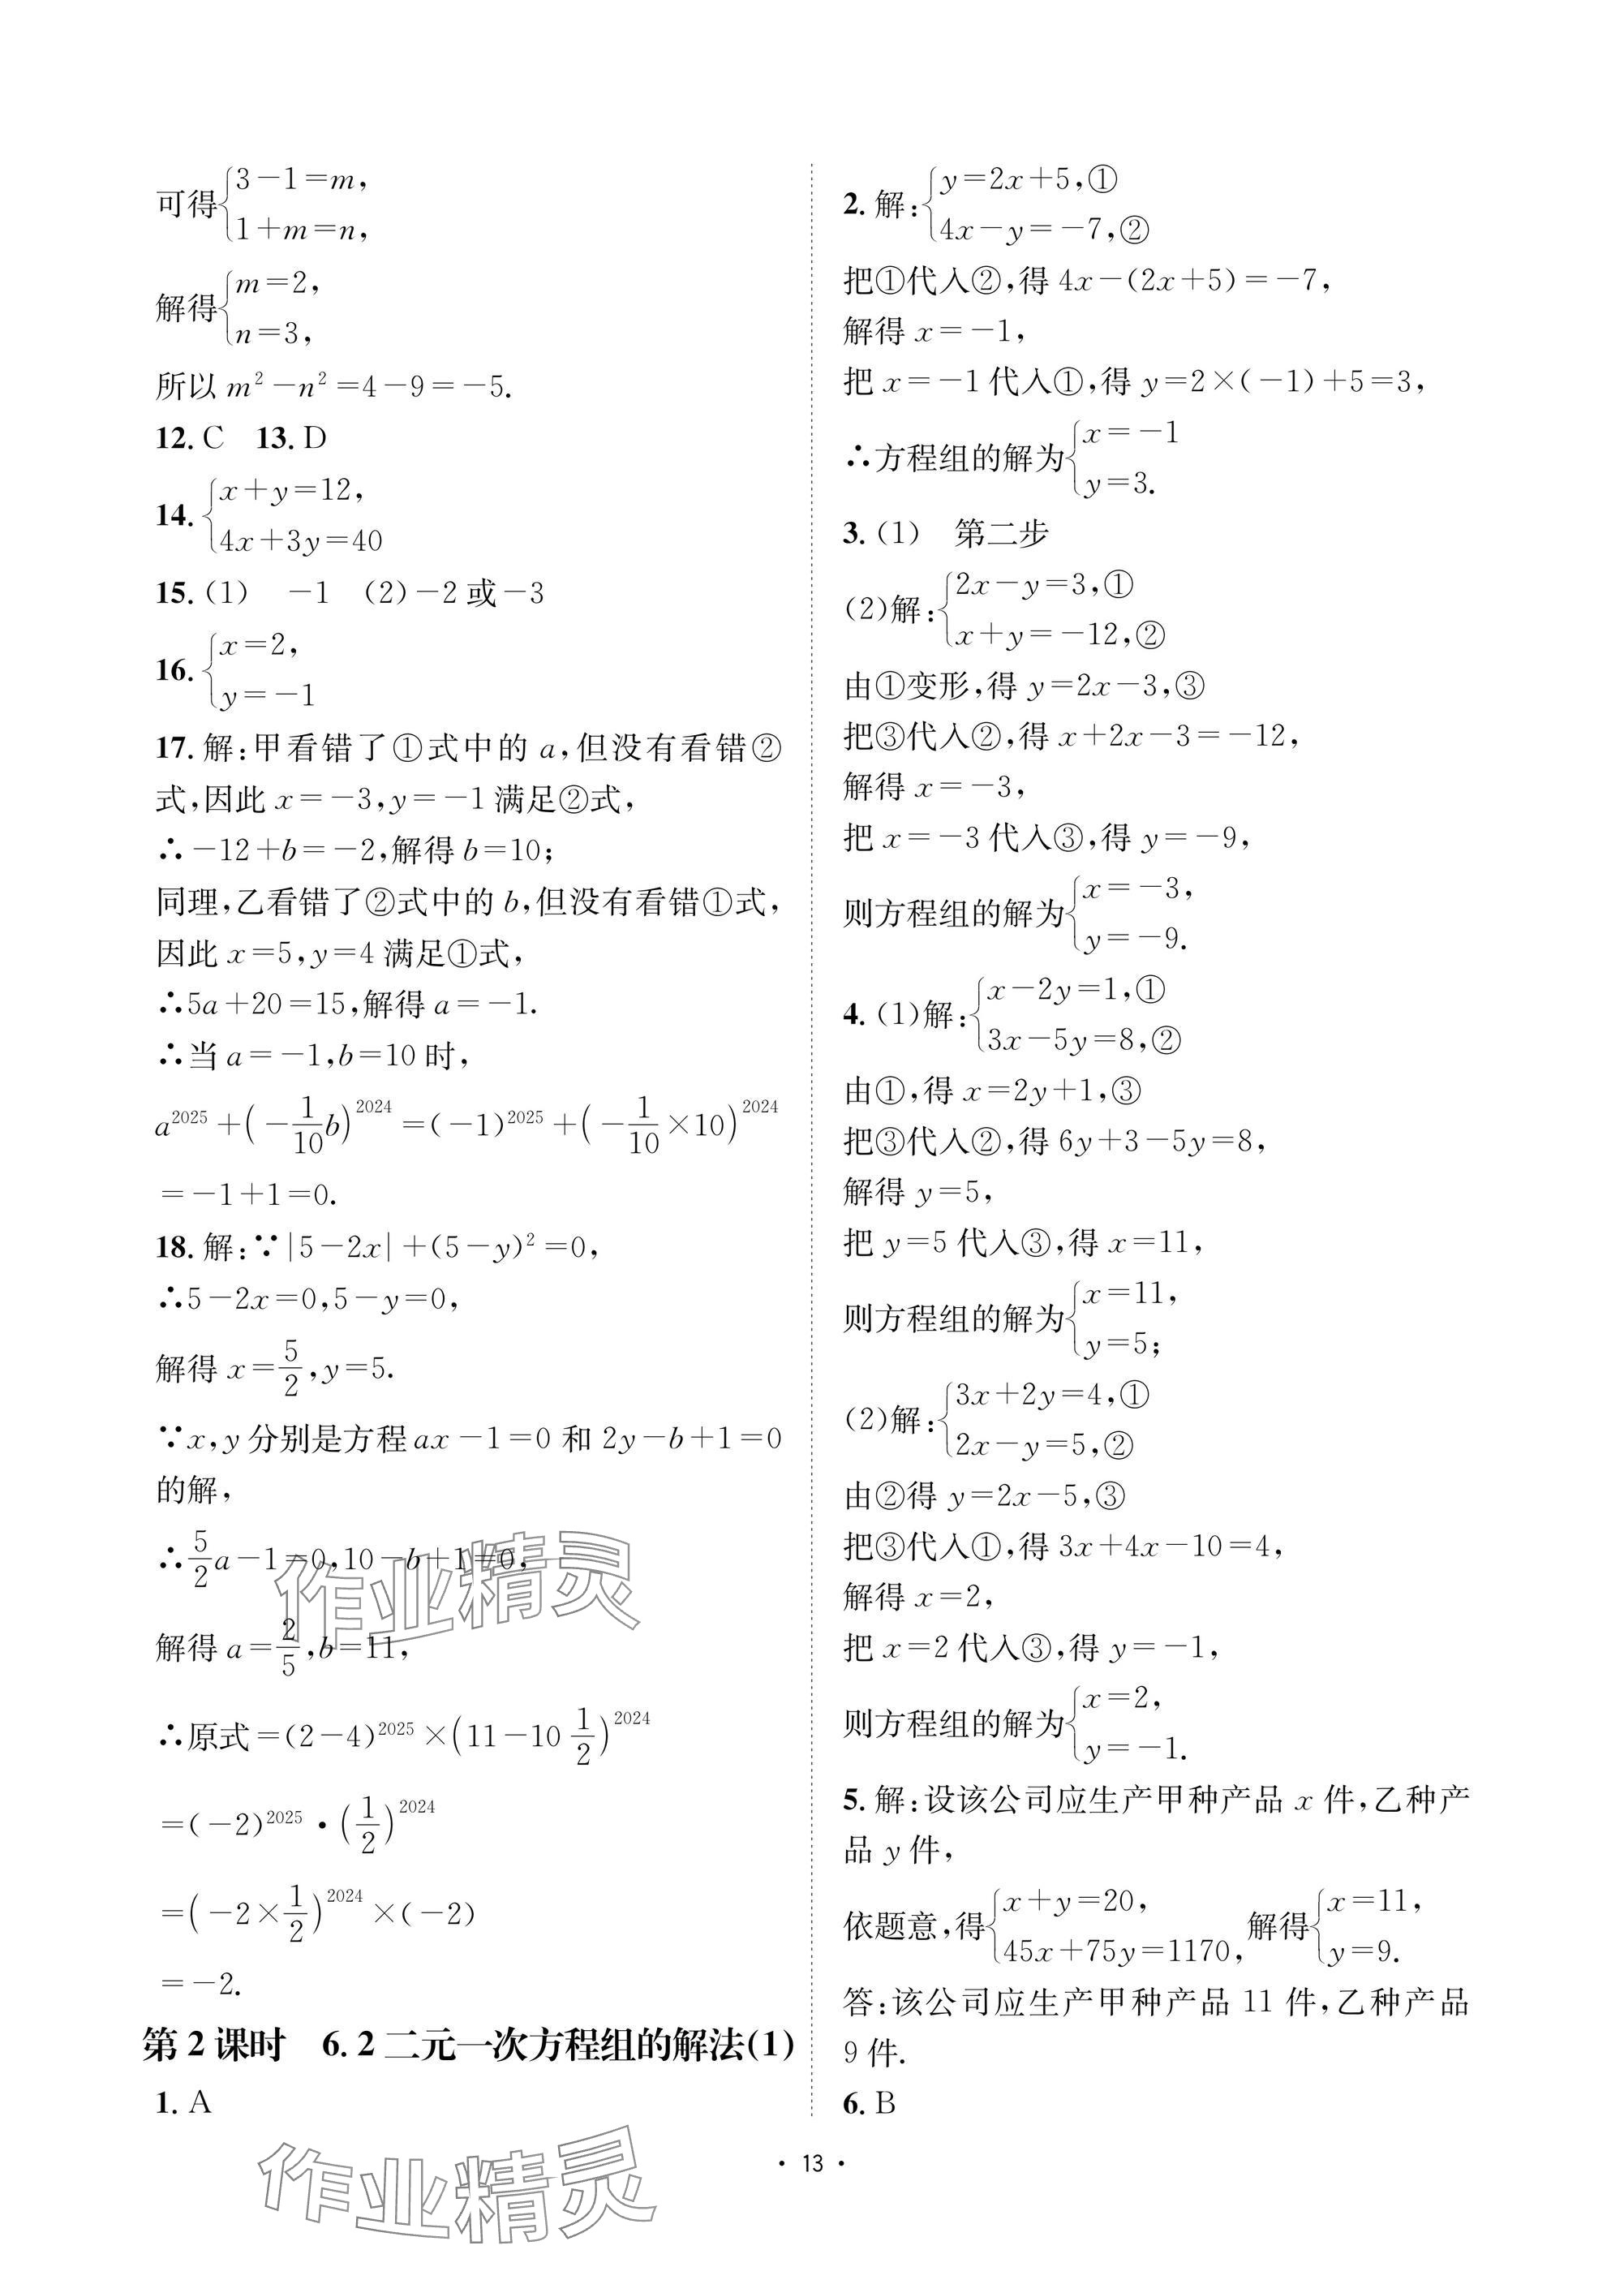 可得{3-1=m,
1+m=n,
解得{m=2,
n=3,
所以 m²-n²=4-9=-5.
12. C 13. D
14. {x+y=12,
4x+3y=40
15. (1) -1 (2)-2或-3
16. {x=2,
y=-1
17. 解:甲看错了①式中的 a,但没有看错②
式,因此 x=-3,y=-1 满足②式,
∴-12+b=-2,解得 b=10;
同理,乙看错了②式中的 b,但没有看错①式,
因此 x=5,y=4 满足①式,
∴5a+20=15,解得 a=-1.
∴当 a=-1,b=10 时,
a²⁰²⁵+(-1/10 b)²⁰²⁴=(-1)²⁰²⁵+(-1/10×10)²⁰²⁴
=-1+1=0.
18. 解:∵|5-2x|+(5-y)²=0,
∴5-2x=0,5-y=0,
解得 x=5/2,y=5.
∵x,y 分别是方程 ax-1=0 和 2y-b+1=0
的解,
∴5/2 a-1=0,10-b+1=0,
解得 a=2/5,b=11,
∴原式=(2-4)²⁰²⁵×(11-10 1/2)²⁰²⁴
=(-2)²⁰²⁵·(1/2)²⁰²⁴
=(-2×1/2)²⁰²⁴×(-2)
=-2.
第2课时 6.2二元一次方程组的解法(1)
1. A
2. 解:{y=2x+5,①
4x-y=-7,②
把①代入②,得 4x-(2x+5)=-7,
解得 x=-1,
把 x=-1 代入①,得 y=2×(-1)+5=3,
∴方程组的解为{x=-1
y=3.
3. (1) 第二步
(2)解:{2x-y=3,①
x+y=-12,②
由①变形,得 y=2x-3,③
把③代入②,得 x+2x-3=-12,
解得 x=-3,
把 x=-3 代入③,得 y=-9,
则方程组的解为{x=-3,
y=-9.
4. (1)解:{x-2y=1,①
3x-5y=8,②
由①,得 x=2y+1,③
把③代入②,得 6y+3-5y=8,
解得 y=5,
把 y=5 代入③,得 x=11,
则方程组的解为{x=11,
y=5;
(2)解:{3x+2y=4,①
2x-y=5,②
由②得 y=2x-5,③
把③代入①,得 3x+4x-10=4,
解得 x=2,
把 x=2 代入③,得 y=-1,
则方程组的解为{x=2,
y=-1.
5. 解:设该公司应生产甲种产品 x 件,乙种产
品 y 件,
依题意,得{x+y=20,
45x+75y=1170, 解得{x=11,
y=9.
答:该公司应生产甲种产品 11 件,乙种产品
9 件.
6. B
· 13 ·
作业精灵
作业精灵